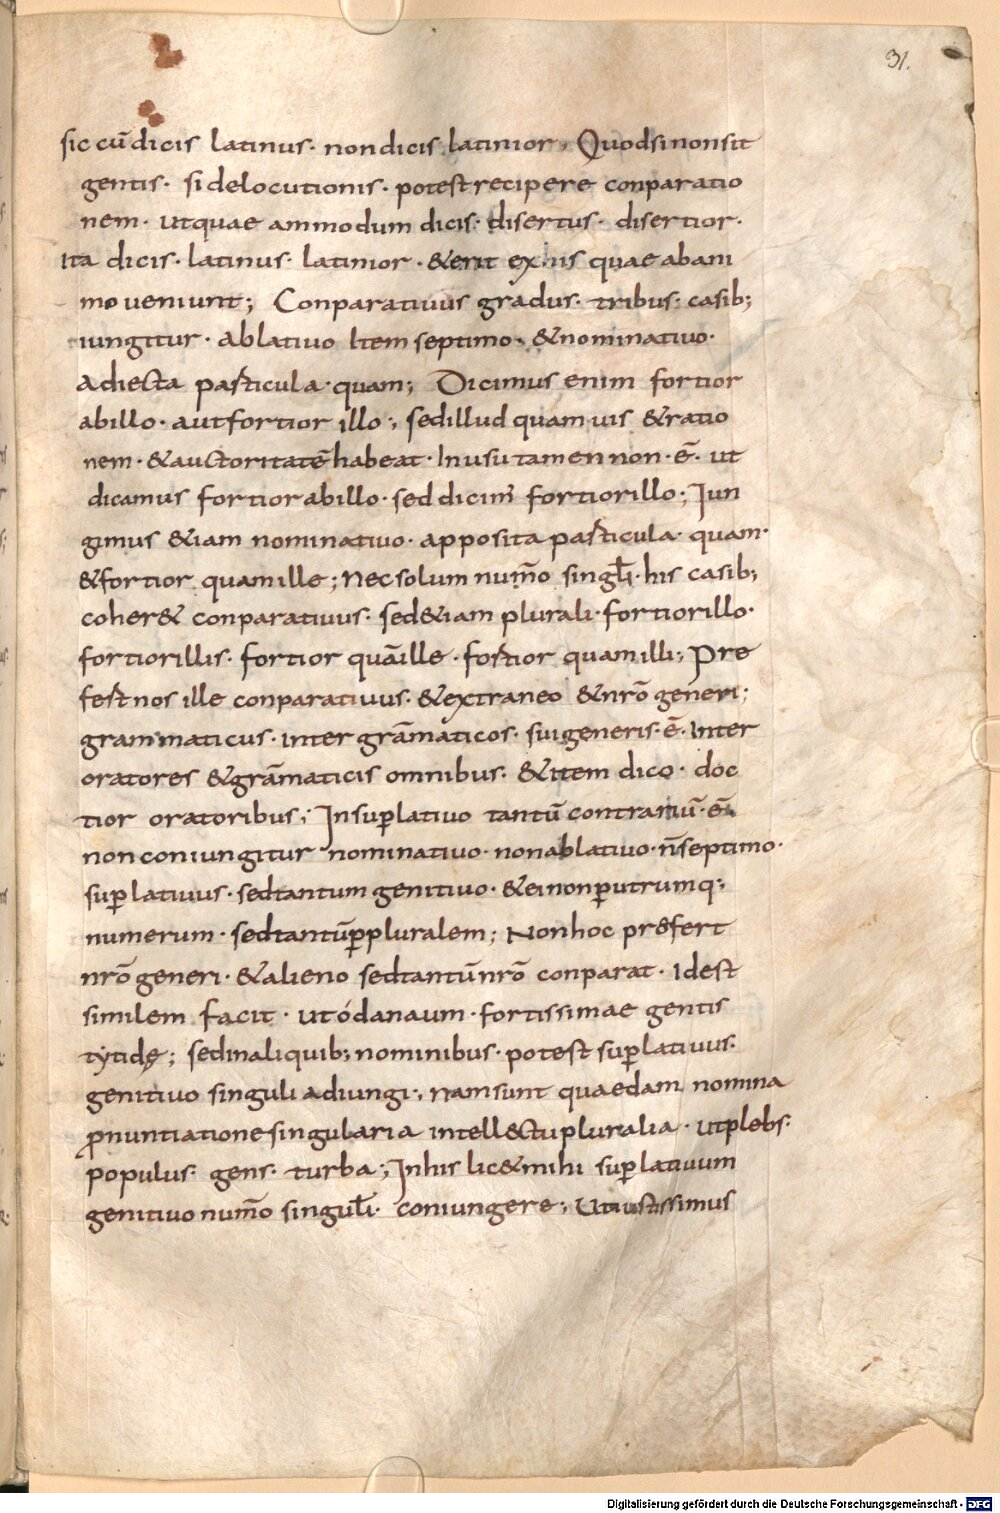 31.
sic cū dicis latinus· non dicis latinior, Quod si non sit
gentis· si de locutionis· potest recipere conparatio
nem· ut quae ammodum dicis· disertus· disertior·
ita dicis· latinus· latinior· & erit ex his quae ab ani
mo veniunt; Conparativus gradus· tribus· casib;
iungitur· ablativo Item septimo· & nominativo·
Adiecta particula· quam; Dicimus enim fortior
ab illo· aut fortior illo; sed illud quam vis & ratio
nem· & auctoritatē habeat· In usu tamen non· ē· ut
dicamus fortior ab illo· sed dicim̄ fortior illo; Iun
gimus &iam nominativo· apposita particula· quam·
& fortior quam ille; Nec solum num̄o singl̄i· his casib;
coher& conparativus· sed &iam plurali· fortior illo·
fortior illis· fortior quā ille· fortior quam illi; Pre
fert nos ille conparativus· & extraneo & nrō generi;
grammaticus· inter grāmaticos· sui generis· ē· Inter
oratores & grāmaticis omnibus· & item dico· doc
tior oratoribus; In sup̄lativo tantū contrariū· ē·
non coniungitur nominativo· non ablativo· n̄ septimo·
sup̄lativus· sed tantum genitivo· & ei non p̄ utrumq;
numerum· sed tantū p̄ pluralem; Non hoc prefert
nrō generi· & alieno sed tantū nrō conparat· Idest
similem facit· ut ó danaum· fortissimae gentis
tytidę; sed in aliquib; nominibus· potest sup̄lativus·
genitivo singuli adiungi; nam sunt quaedam nomina
p̄nuntiatione singularia intell&ctu pluralia· ut plebs·
populus· gens· turba; In his lic& mihi sup̄lativum
genitivo num̄o singul̄i· coniungere; Ut iustissimus
Digitalisierung gefördert durch die Deutsche Forschungsgemeinschaft - DFG